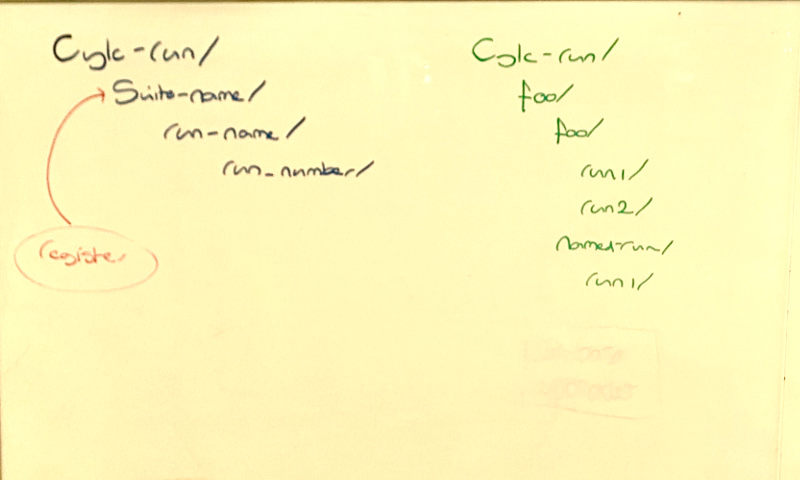 Cylc-run/
Suite-name/
run-name/
run_number/
register
Cylc-run/
foo/
foo/
run1/
run2/
named-run/
run1/